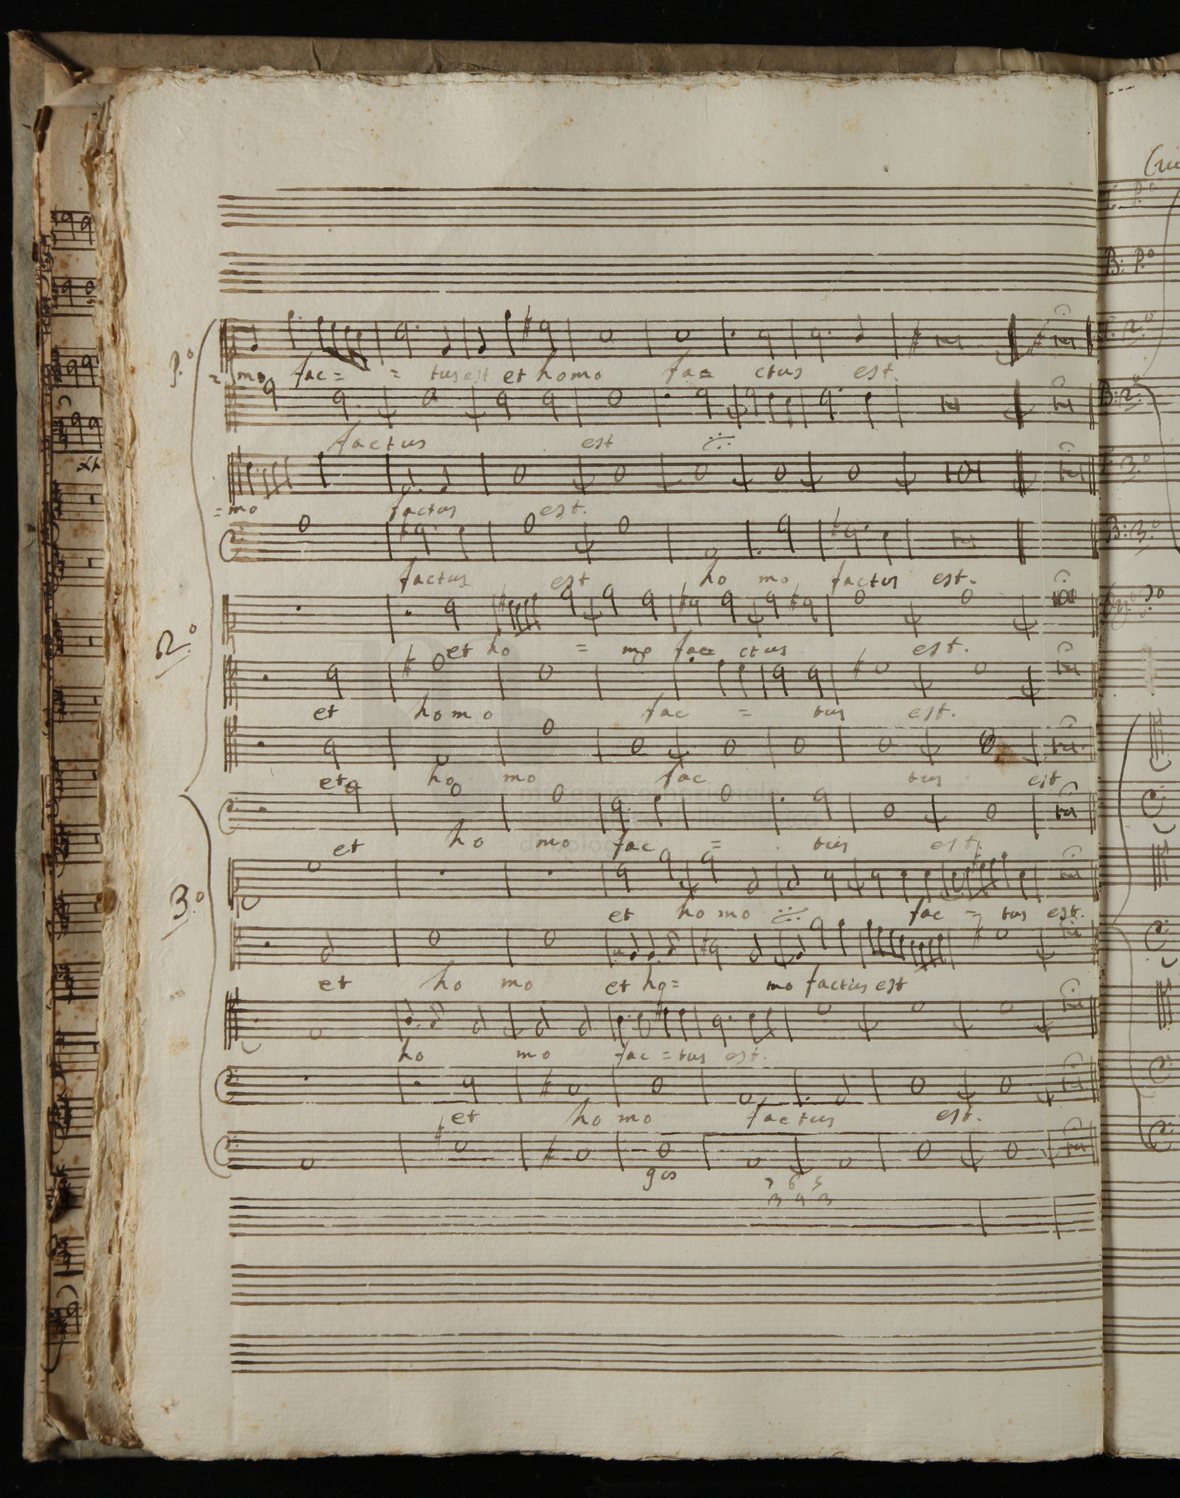 p.º
= mo fac= = tus est et homo fac= ctus est.
factus est
= mo factus est.
factus est ho mo factus est.
2.º
et ho = mo fac= ctus est.
et homo fac = tus est.
et ho mo fac tus est
et ho mo fac = tus est.
3.º
et ho mo fac = tus est.
et ho mo et ho= mo factus est
ho mo fac=tus est.
et ho mo factus est.
7 6 5
3 4 3